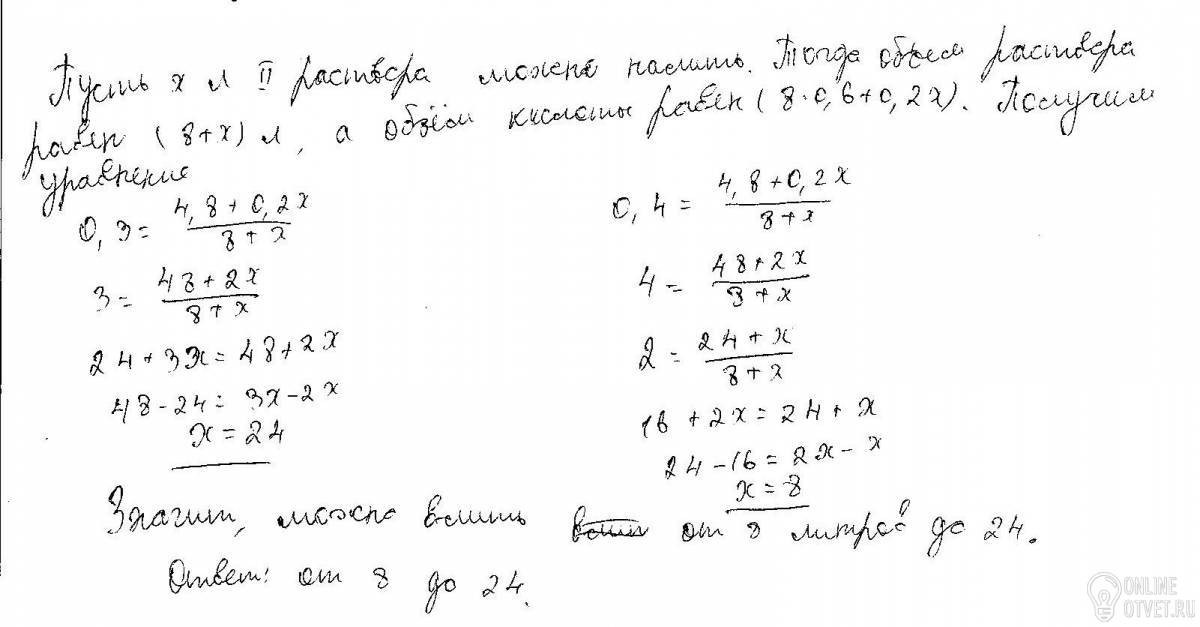 Пусть x л II раствора можно налить. Тогда объем раствора
равен (8+x) л, а объём кислоты равен (8·0,6+0,2x). Получим
уравнение
0,3 = (4,8+0,2x)/(8+x)
3 = (48+2x)/(8+x)
24+3x=48+2x
48-24=3x-2x
x=24
0,4 = (4,8+0,2x)/(8+x)
4 = (48+2x)/(8+x)
2 = (24+x)/(8+x)
16+2x=24+x
24-16=2x-x
x=8
Значит, можно влить от 8 литров до 24.
Ответ: от 8 до 24.
ONLINE
OTVET.RU